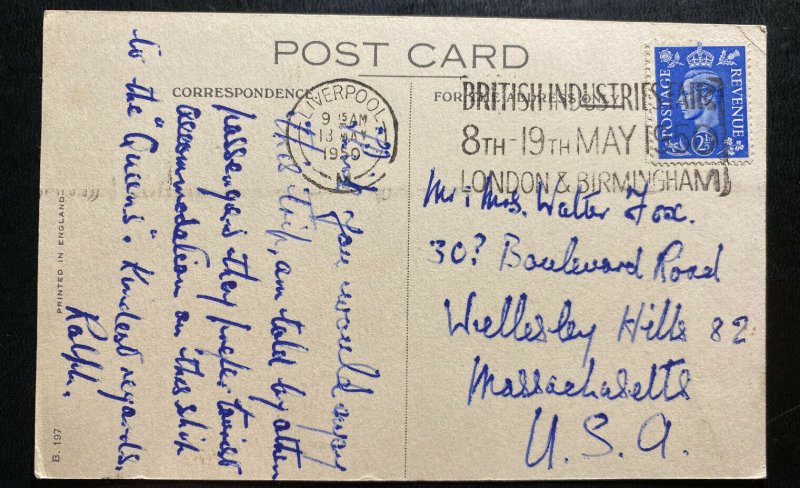 POST CARD
CORRESPONDENCE
FOR THE ADDRESS ONLY
LIVERPOOL
9 15 AM
13 MAY
1950
BRITISH INDUSTRIES FAIR
8TH-19TH MAY 1950
LONDON & BIRMINGHAM
POSTAGE
REVENUE
2½D
Think you would enjoy
this trip, am told by other
passengers they prefer tourist
accommodation on this ship
to the "Queens". Kindest regards.
Ralph.
Mr & Mrs. Walter Fox.
30? Boulevard Road
Wellesley Hills 82
Massachusetts
U.S.A.
PRINTED IN ENGLAND
B. 197